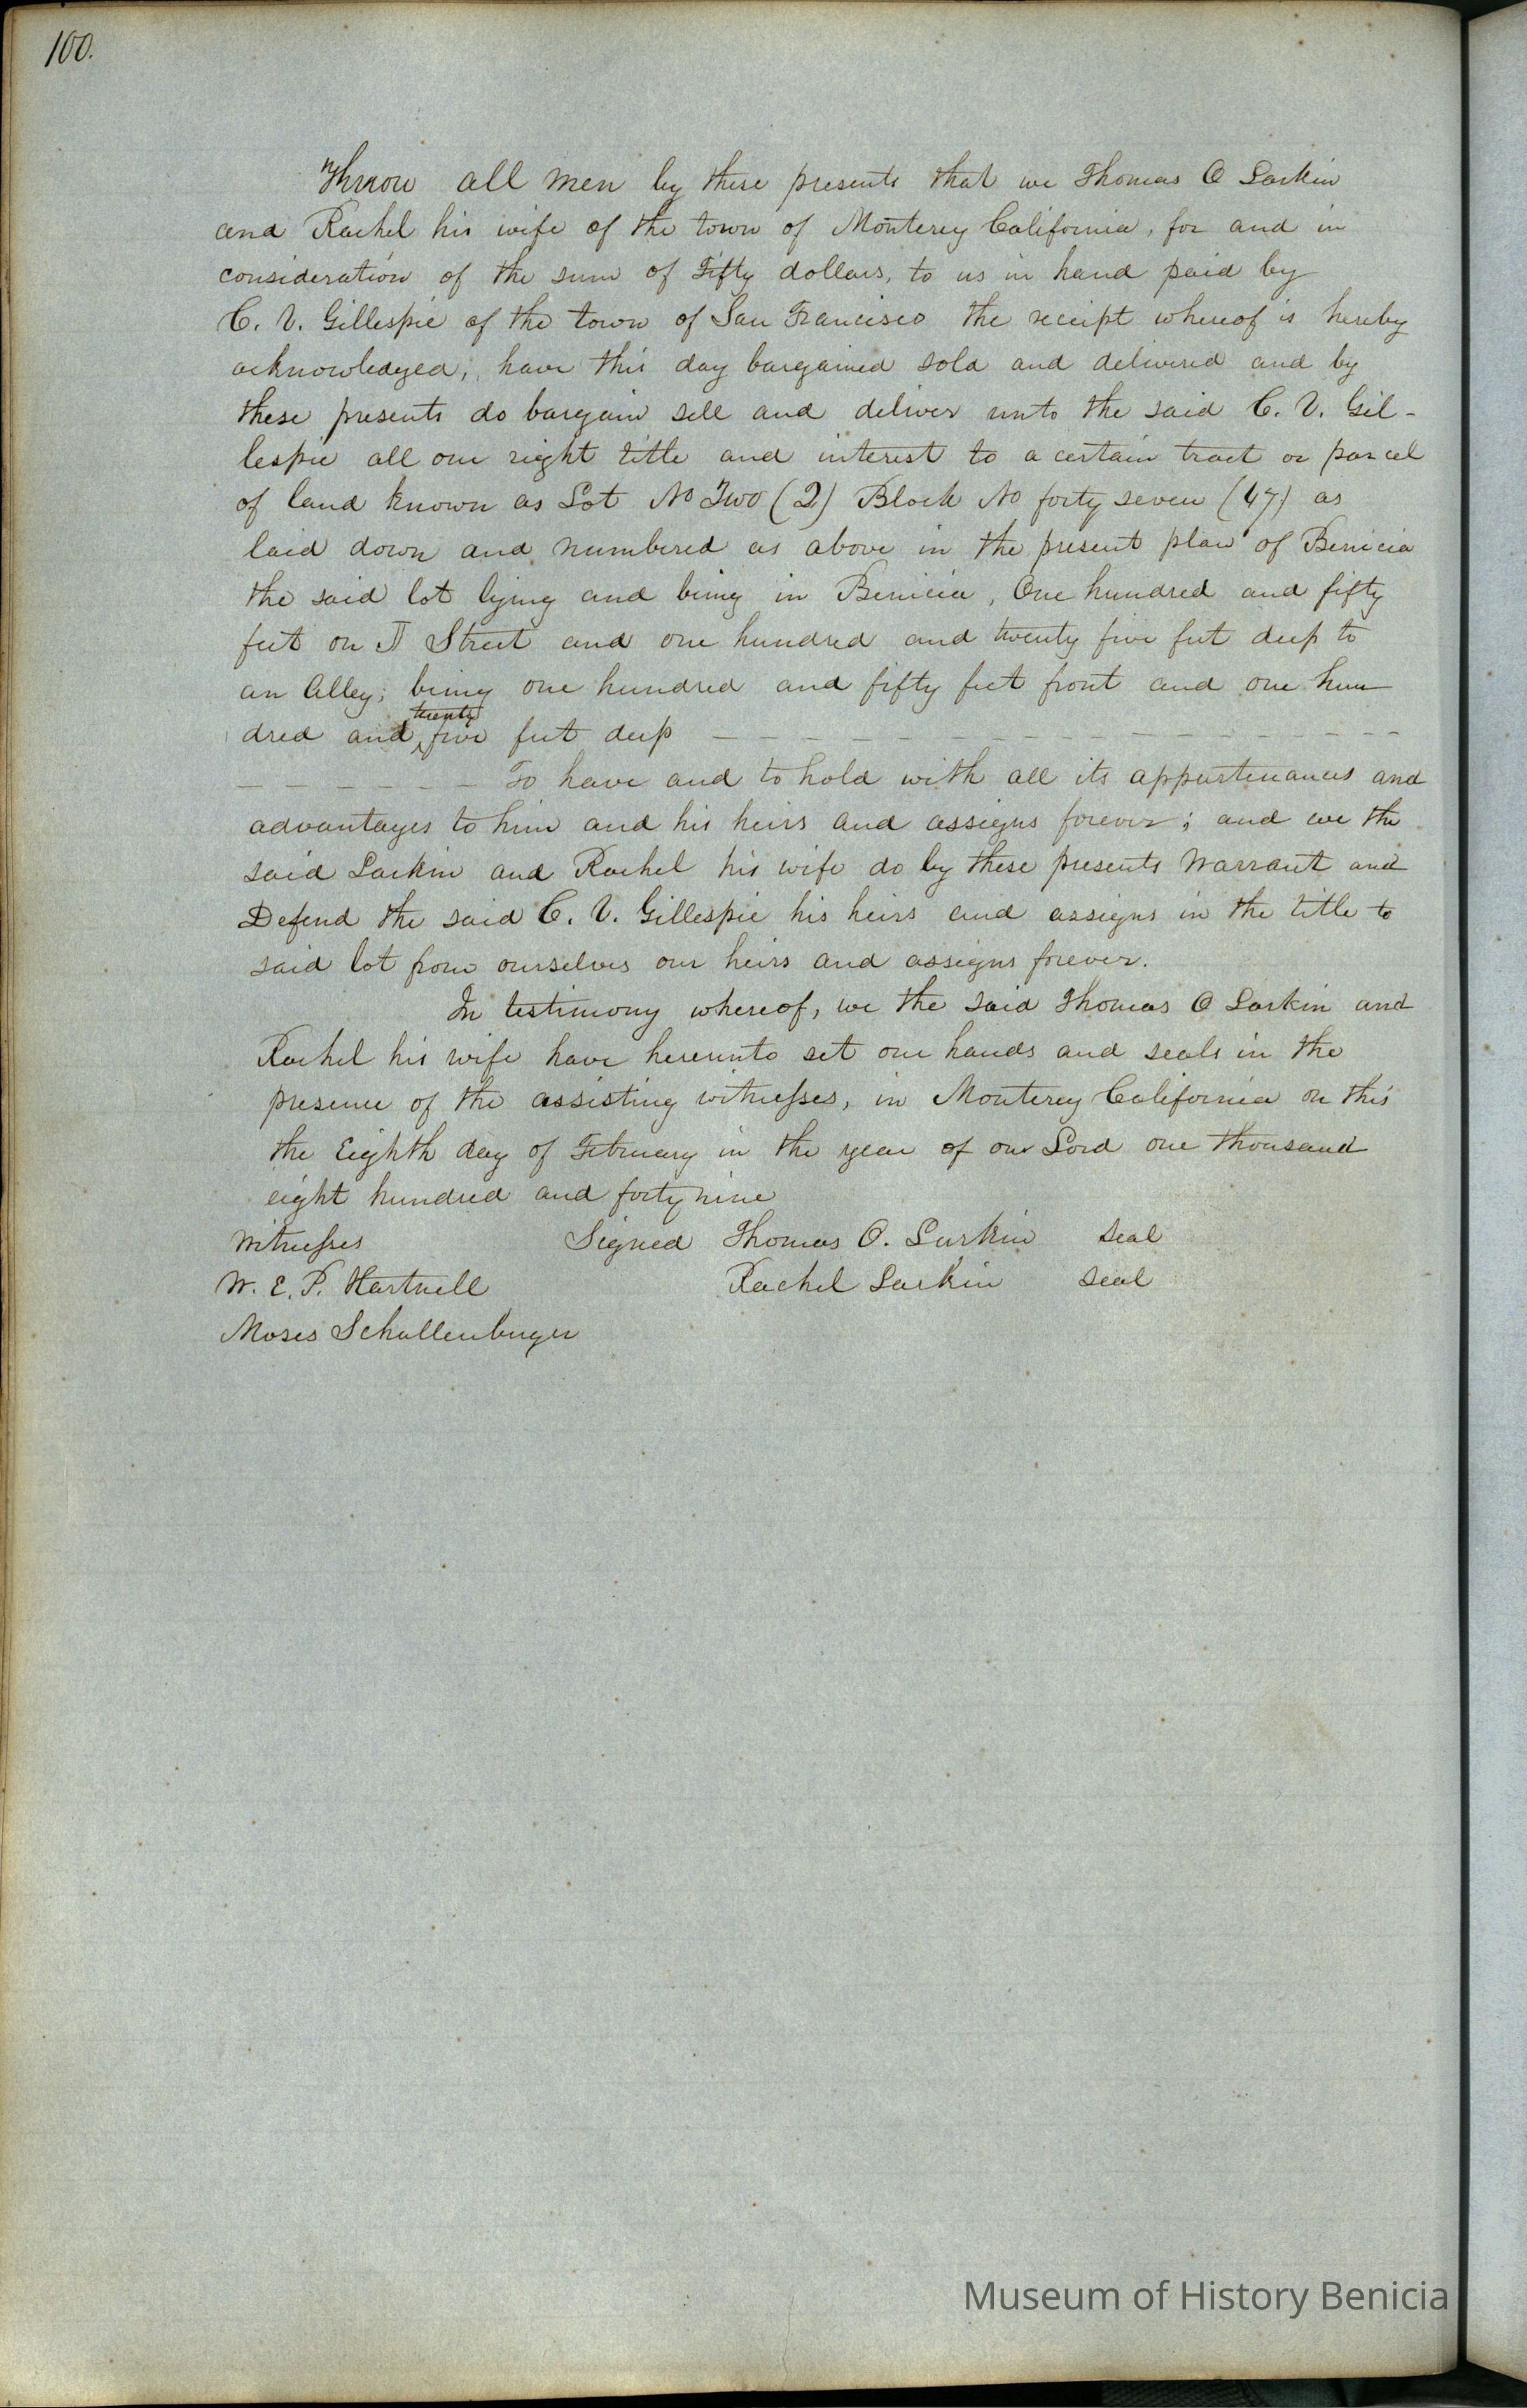 100.
Know all men by these presents that we Thomas O Larkin
and Rachel his wife of the town of Monterey California, for and in
consideration of the sum of Fifty dollars, to us in hand paid by
C. V. Gillespie of the town of San Francisco the receipt whereof is hereby
acknowledged, have this day bargained sold and delivered and by
these presents do bargain sell and deliver unto the said C. V. Gil-
lespie all our right title and interest to a certain tract or parcel
of land known as Lot No Two (2) Block No forty seven (47) as
laid down and numbered as above in the present plan of Benicia
the said lot lying and being in Benicia, One hundred and fifty
feet on Street and one hundred and twenty five feet deep to
an Alley; being one hundred and fifty feet front and one hun
dred and twenty five feet deep
To have and to hold with all its appurtenances and
advantages to him and his heirs and assigns forever; and we the
said Larkin and Rachel his wife do by these presents Warrant and
Defend the said C. V. Gillespie his heirs and assigns in the title to
said lot from ourselves our heirs and assigns forever.
In testimony whereof, we the said Thomas O Larkin and
Rachel his wife have hereunto set our hands and seals in the
presence of the assisting witnesses, in Monterey California on this
the Eighth day of February in the year of our Lord one thousand
eight hundred and forty nine
Witnesses Signed Thomas O. Larkin Seal
W. E. P. Hartnell Rachel Larkin Seal
Moses Schallenburger
Museum of History Benicia